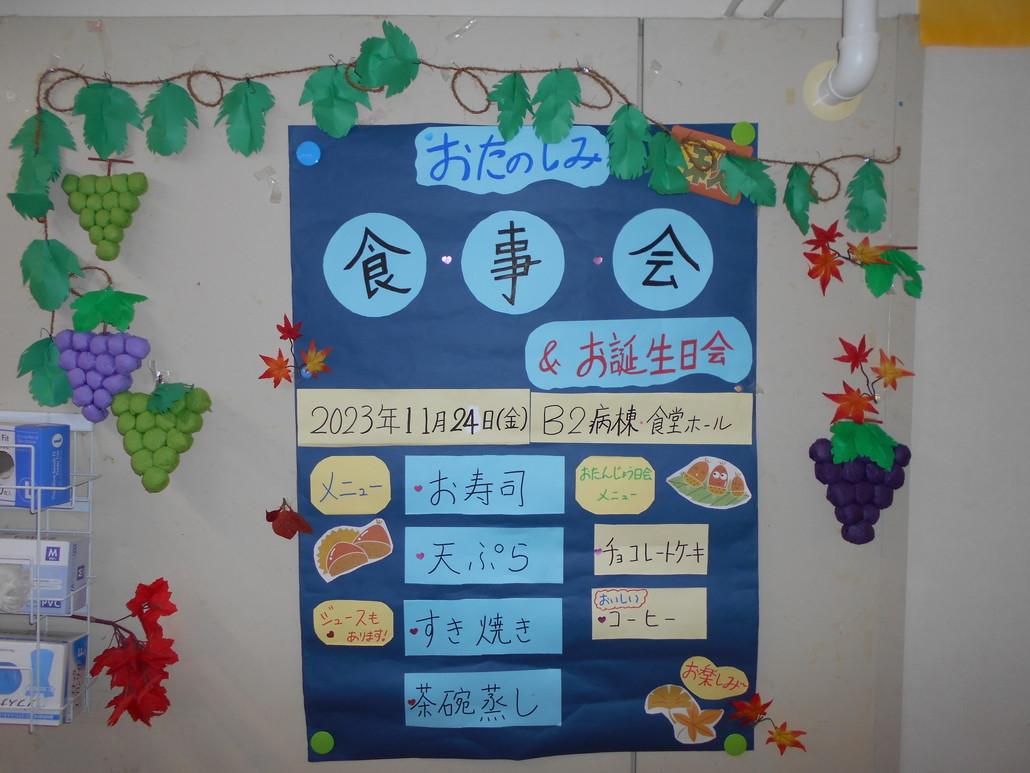 おたのしみ
食・事・会
& お誕生日会
2023年11月24日(金) B2病棟・食堂ホール
メニュー
お寿司
天ぷら
ジュースも
あります!
すき焼き
茶碗蒸し
おたんじょう日会
メニュー
チョコレートケーキ
おいしい
コーヒー
お楽しみ~
Fit
M
PVC